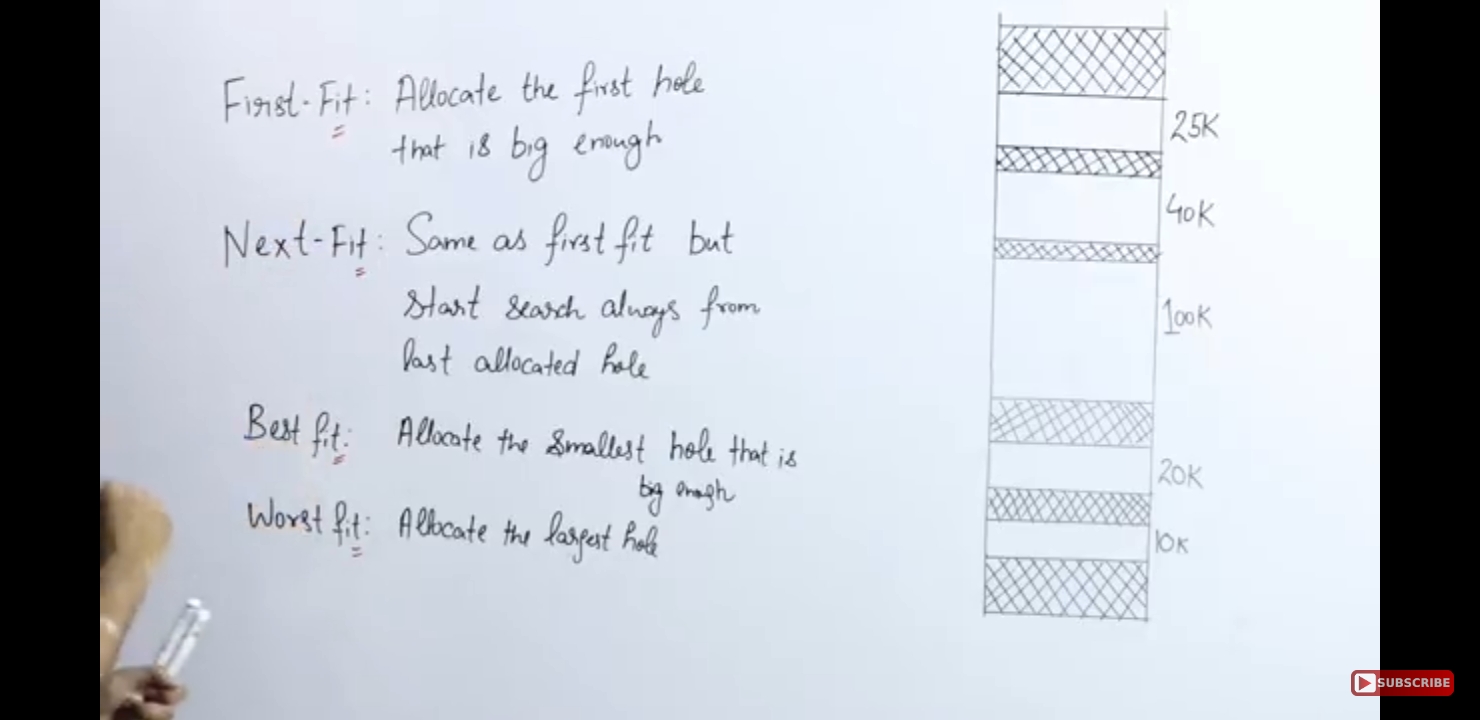 First-Fit: Allocate the first hole
that is big enough
Next-Fit: Same as first fit but
start search always from
last allocated hole
Best fit: Allocate the smallest hole that is
big enough
Worst fit: Allocate the largest hole
25K
40K
100K
20K
10K
SUBSCRIBE